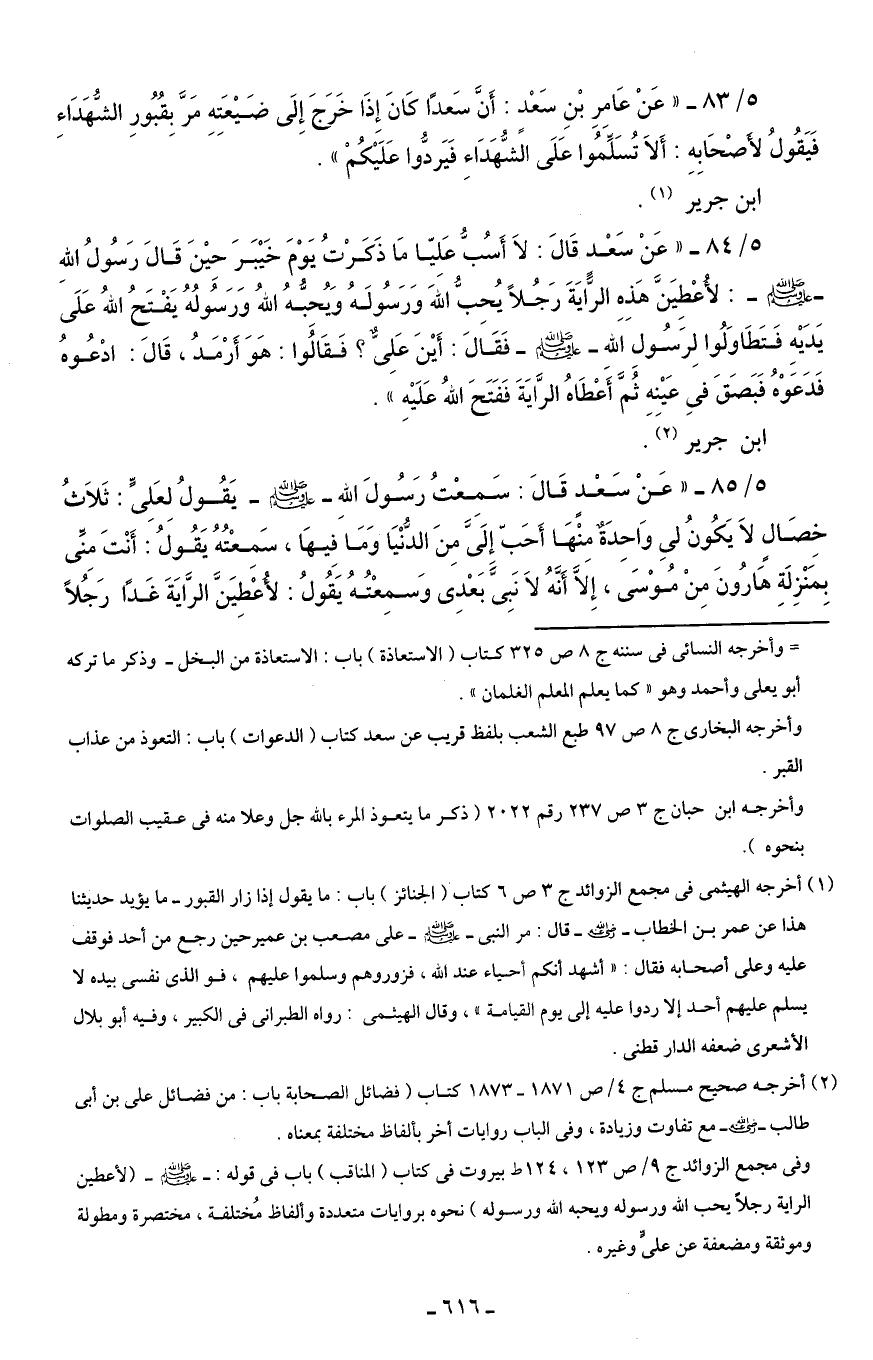 ٥/ ٨٣ ـ « عَنْ عَامِرِ بْنِ سَعْدٍ : أَنَّ سَعْدًا كَانَ إِذَا خَرَجَ إِلَى ضَيْعَتِهِ مَرَّ بِقُبُورِ الشُّهَدَاءِ
فَيَقُولُ لأَصْحَابِهِ : أَلاَ تُسَلِّمُوا عَلَى الشُّهَدَاءِ فَيَرُدُّوا عَلَيْكُمْ » .
ابن جرير (١) .
٥/ ٨٤ ـ « عَنْ سَعْدٍ قَالَ : لاَ أَسُبُّ عَلِيّا مَا ذَكَرْتُ يَوْمَ خَيْبَرَ حِيْنَ قَالَ رَسُولُ اللهِ
ـ ﷺ ـ : لأُعْطِيَنَّ هَذِهِ الرَّايَةَ رَجُلاً يُحِبُّ اللهَ وَرَسُولَهُ وَيُحِبُّهُ اللهُ وَرَسُولُهُ يَفْتَحُ اللهُ عَلَى
يَدَيْهِ فَتَطَاوَلُوا لِرَسُولِ اللهِ ـ ﷺ ـ فَقَالَ : أَيْنَ عَلِىٌّ ؟ فَقَالُوا : هُوَ أَرْمَدُ ، قَالَ : ادْعُوهُ
فَدَعَوْهُ فَبَصَقَ فِى عَيْنِهِ ثُمَّ أَعْطَاهُ الرَّايَةَ فَفَتَحَ اللهُ عَلَيْهِ » .
ابن جرير (٢) .
٥/ ٨٥ ـ « عَنْ سَعْدٍ قَالَ : سَمِعْتُ رَسُولَ اللهِ ـ ﷺ ـ يَقُولُ لِعَلِىٍّ : ثَلاَثُ
خِصَالٍ لاَ يَكُونُ لِى وَاحِدَةٌ مِنْهَا أَحَبّ إِلَىَّ مِنَ الدُّنْيَا وَمَا فِيهَا ، سَمِعْتُهُ يَقُولُ : أَنْتَ مِنِّى
بِمَنْزِلَةِ هَارُونَ مِنْ مُوْسَى ، إِلاَّ أَنَّهُ لاَ نَبِىَّ بَعْدِى وَسَمِعْتُهُ يَقُولُ : لأُعْطِيَنَّ الرَّايَةَ غَدًا رَجُلاً
= وأخرجه النسائى فى سننه ج ٨ ص ٣٢٥ كتاب ( الاستعاذة ) باب : الاستعاذة من البخل ـ وذكر ما تركه
أبو يعلى وأحمد وهو « كما يعلم المعلم الغلمان » .
وأخرجه البخارى ج ٨ ص ٩٧ طبع الشعب بلفظ قريب عن سعد كتاب ( الدعوات ) باب : التعوذ من عذاب
القبر .
وأخرجه ابن حبان ج ٣ ص ٢٣٧ رقم ٢٠٢٢ ( ذكر ما يتعوذ المرء بالله جل وعلا منه فى عقيب الصلوات
بنحوه ).
(١) أخرجه الهيثمى فى مجمع الزوائد ج ٣ ص ٦ كتاب ( الجنائز ) باب : ما يقول إذا زار القبور ـ ما يؤيد حديثنا
هذا عن عمر بن الخطاب ـ رضي الله عنه ـ قال : مر النبى ـ ﷺ ـ على مصعب بن عميرحين رجع من أحد فوقف
عليه وعلى أصحابه فقال : « أشهد أنكم أحياء عند الله ، فزوروهم وسلموا عليهم ، فو الذى نفسى بيده لا
يسلم عليهم أحد إلا ردوا عليه إلى يوم القيامة » ، وقال الهيثمى : رواه الطبرانى فى الكبير ، وفيه أبو بلال
الأشعرى ضعفه الدار قطنى .
(٢) أخرجه صحيح مسلم ج ٤/ ص ١٨٧١ ـ ١٨٧٣ كتاب ( فضائل الصحابة باب : من فضائل على بن أبى
طالب ـ رضي الله عنه ـ مع تفاوت وزيادة ، وفى الباب روايات أخر بألفاظ مختلفة بمعناه .
وفى مجمع الزوائد ج ٩/ ص ١٢٣ ، ١٢٤ط بيروت فى كتاب ( المناقب ) باب فى قوله : ـ ﷺ ـ (لأعطين
الراية رجلاً يحب الله ورسوله ويحبه الله ورسوله ) نحوه بروايات متعددة وألفاظ مُختلفة ، مختصرة ومطولة
وموثقة ومضعفة عن علىٍّ وغيره .
ـ ٦١٦ ـ